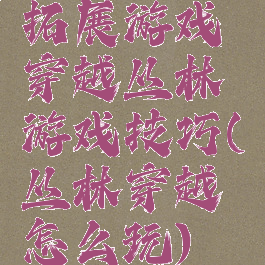 拓展游戏
穿越丛林
游戏技巧(
丛林穿越
怎么玩)